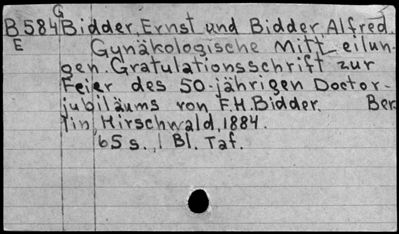 G
B 584 Bidder, Ernst und Bidder, Alfred.
E Gynäkologische Mitteilun-
gen. Gratulationsschrift zur
Feier des 50-jährigen Doctor-
jubiläums von F.H. Bidder. Ber
lin, Hirschwald, 1884.
65 s., 1 Bl. Taf.